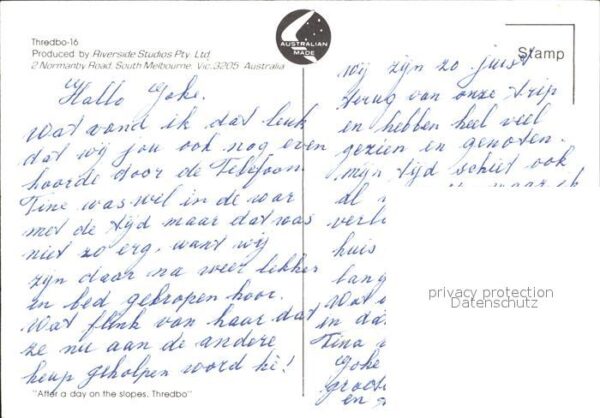 Thredbo-16
Produced by Riverside Studios Pty. Ltd
2 Normanby Road, South Melbourne, Vic. 3205 Australia
AUSTRALIAN
MADE
Stamp
Hallo Joke.
Wat vond ik dat leuk
dat wij jou ook nog even
hoorde door de Telefoon
Tine was wil in de war
met de tijd maar dat was
niet zo erg, want wij
zijn daar na weer lekker
in bed gekropen hoor.
Wat flink van haar dat
ze nu aan de andere
heup geholpen word hè!
"After a day on the slopes, Thredbo"
wij zijn zo juist
terug van onze trip
en hebben heel veel
gezien en genoten.
mijn tijd schiet ook
al
verl
huis
lang
Wat
in da
Tina
Joke
groet
en
privacy protection
Datenschutz